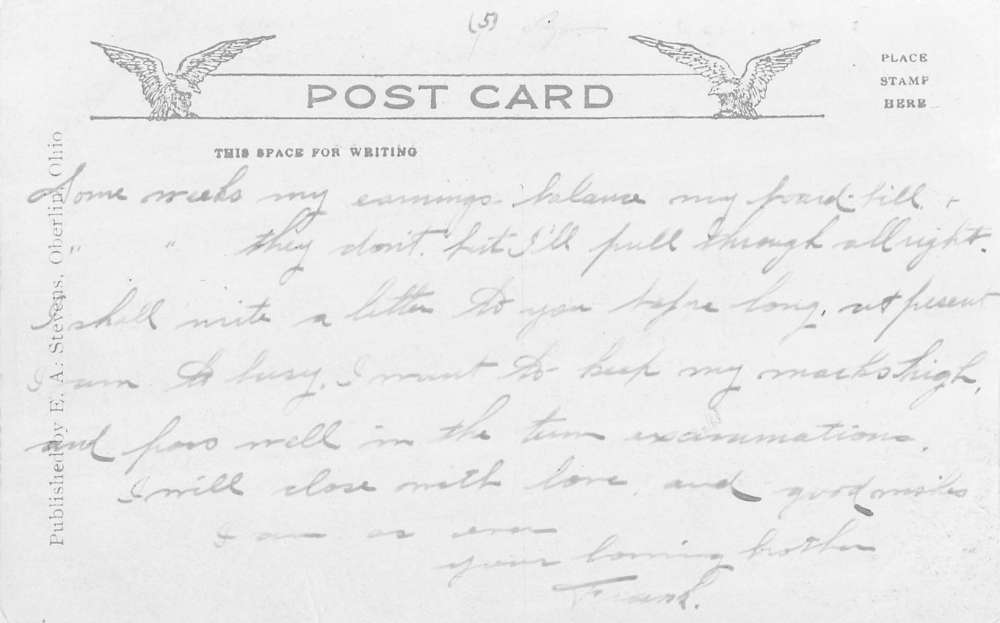 (5)
POST CARD
PLACE
STAMP
HERE
THIS SPACE FOR WRITING
Published by E. A. Stevens, Oberlin, Ohio
Some weeks my earnings balance my board-bill, +
" " they don't. but I'll pull through allright.
I shall write a letter to you before long, at present
I am to busy. I want to keep my marks high,
and pass well in the term examinations.
I will close with love and good wishes
I am as ever
your loving brother
Frank.